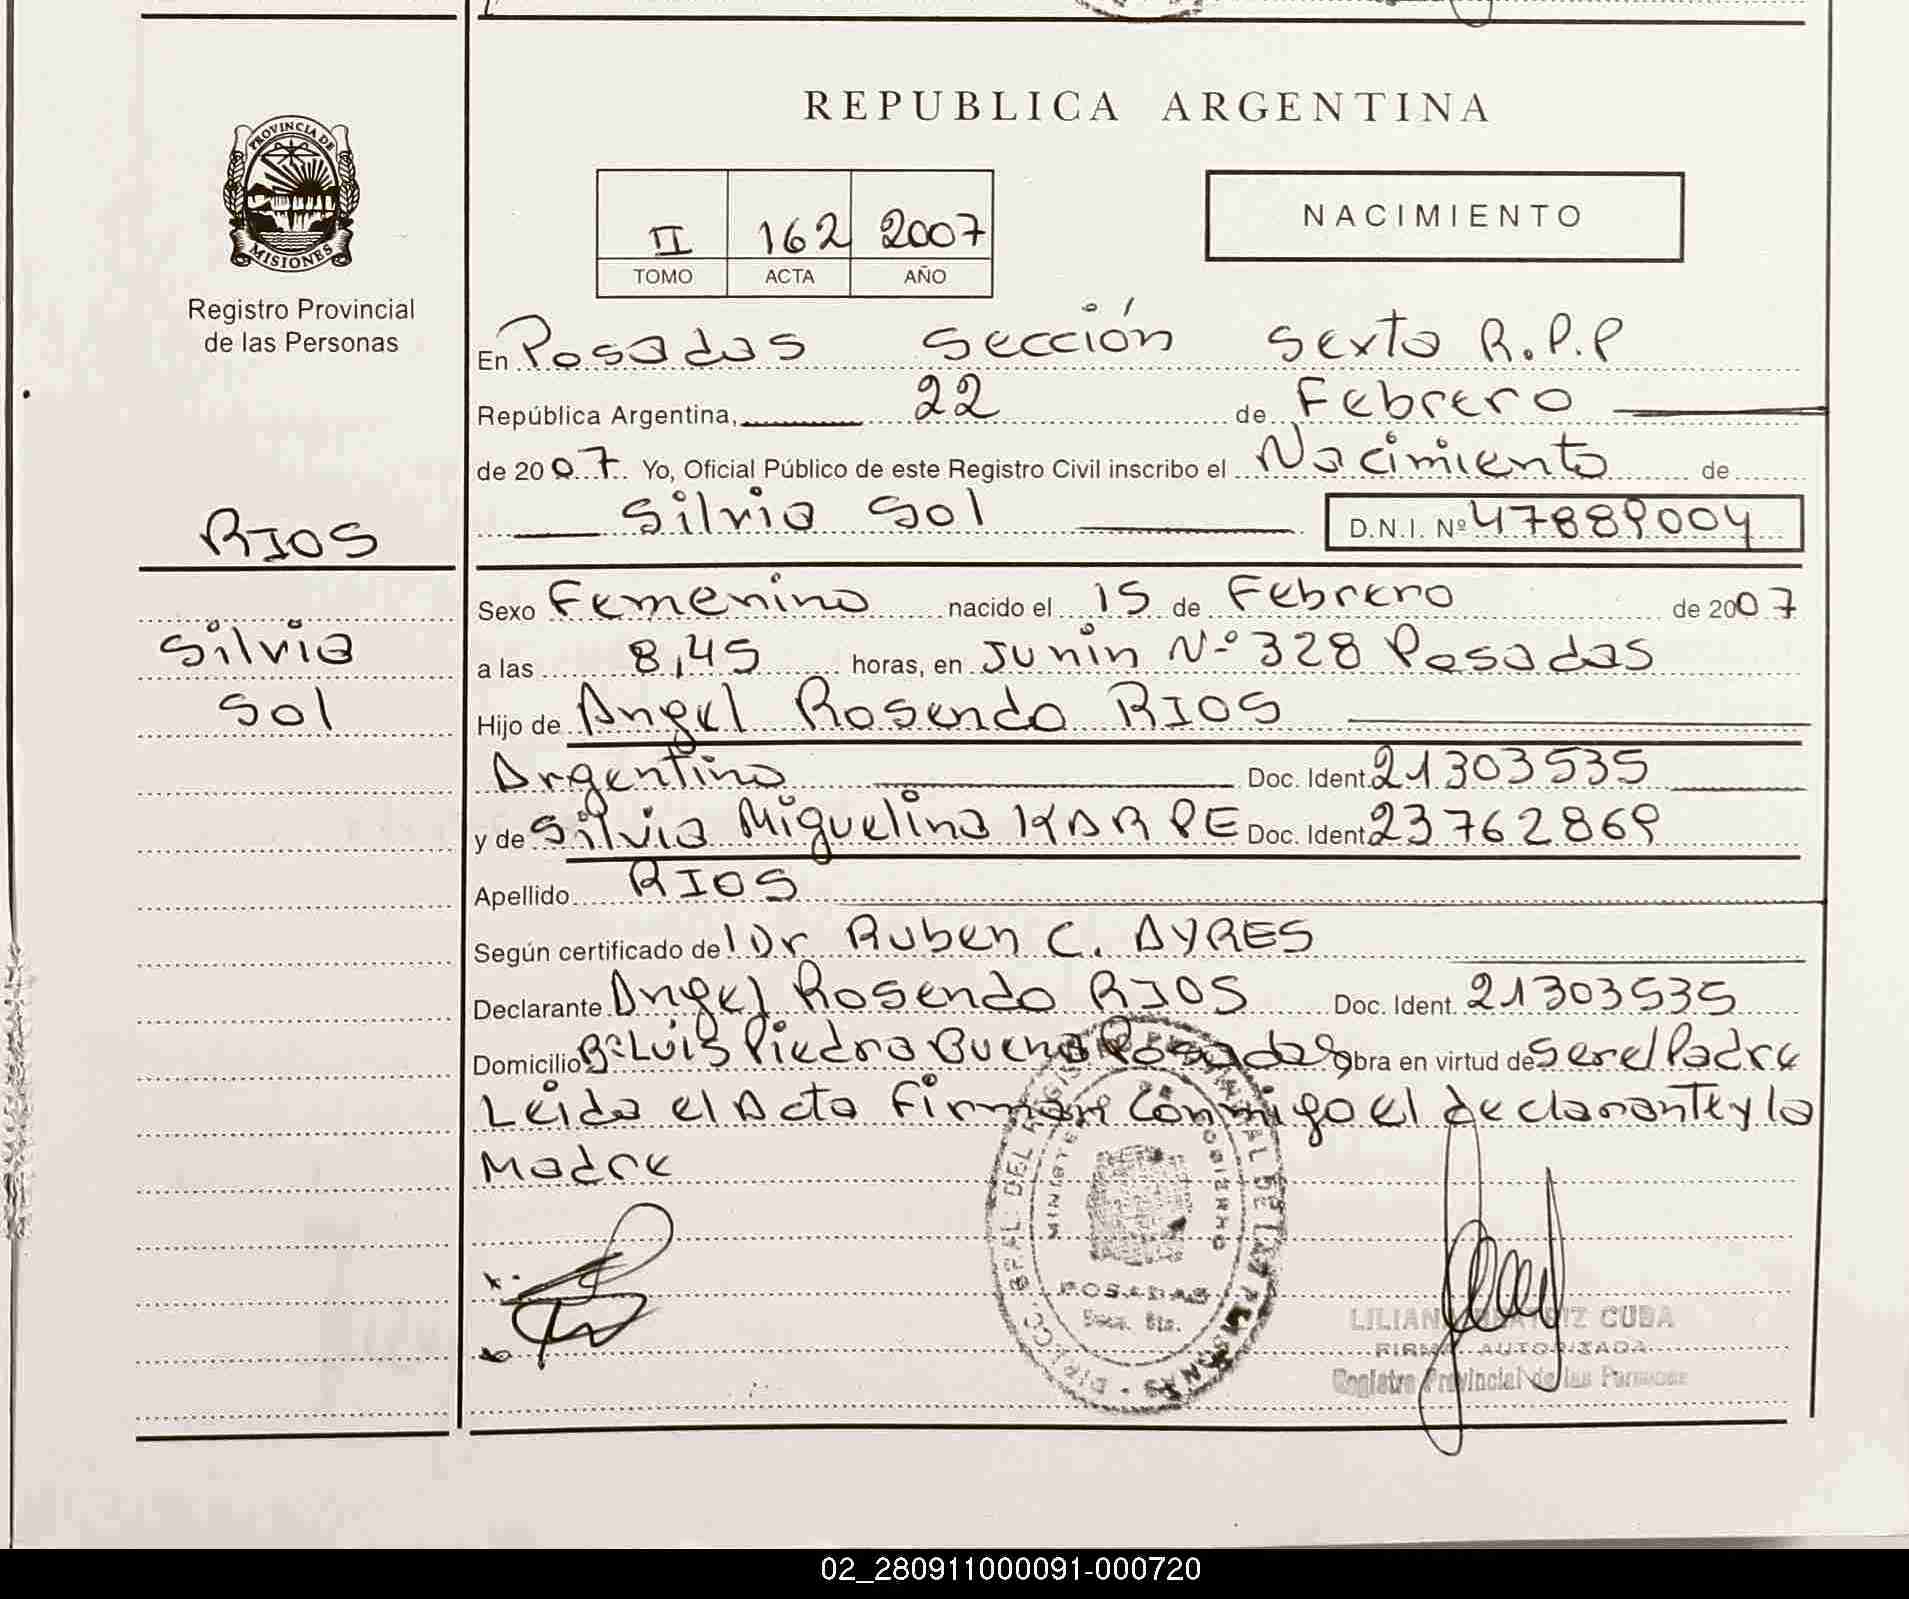 REPUBLICA ARGENTINA
PROVINCIA DE
MISIONES
Registro Provincial
de las Personas
II 162 2007
TOMO ACTA AÑO
NACIMIENTO
En Posadas Sección Sexta R.P.P
República Argentina, 22 de Febrero
de 2007. Yo, Oficial Público de este Registro Civil inscribo el Nacimiento de
Silvia Sol D.N.I. Nº 47889004
RIOS
Silvia
Sol
Sexo Femenino nacido el 15 de Febrero de 2007
a las 8,45 horas, en Junin Nº 328 Posadas
Hijo de Angel Rosendo RIOS
Argentino Doc. Ident. 21303535
y de Silvia Miguelina KARPE Doc. Ident. 23762869
Apellido RIOS
Según certificado del Dr Ruben C. AYRES
Declarante Angel Rosendo RIOS Doc. Ident. 21303535
Domicilio Bº Luis Piedra Buena Posadas Obra en virtud de Ser el Padre
Leida el Acta Firman Conmigo el declarante y la
Madre
DIRECC. GRAL. DEL REGISTRO PROVINCIAL DE LAS PERSONAS
MINISTERIO DE GOBIERNO
POSADAS
Secc. 6ta.
LILIANA BEATRIZ CUBA
FIRMA AUTORIZADA
Registro Provincial de las Personas
02_280911000091-000720